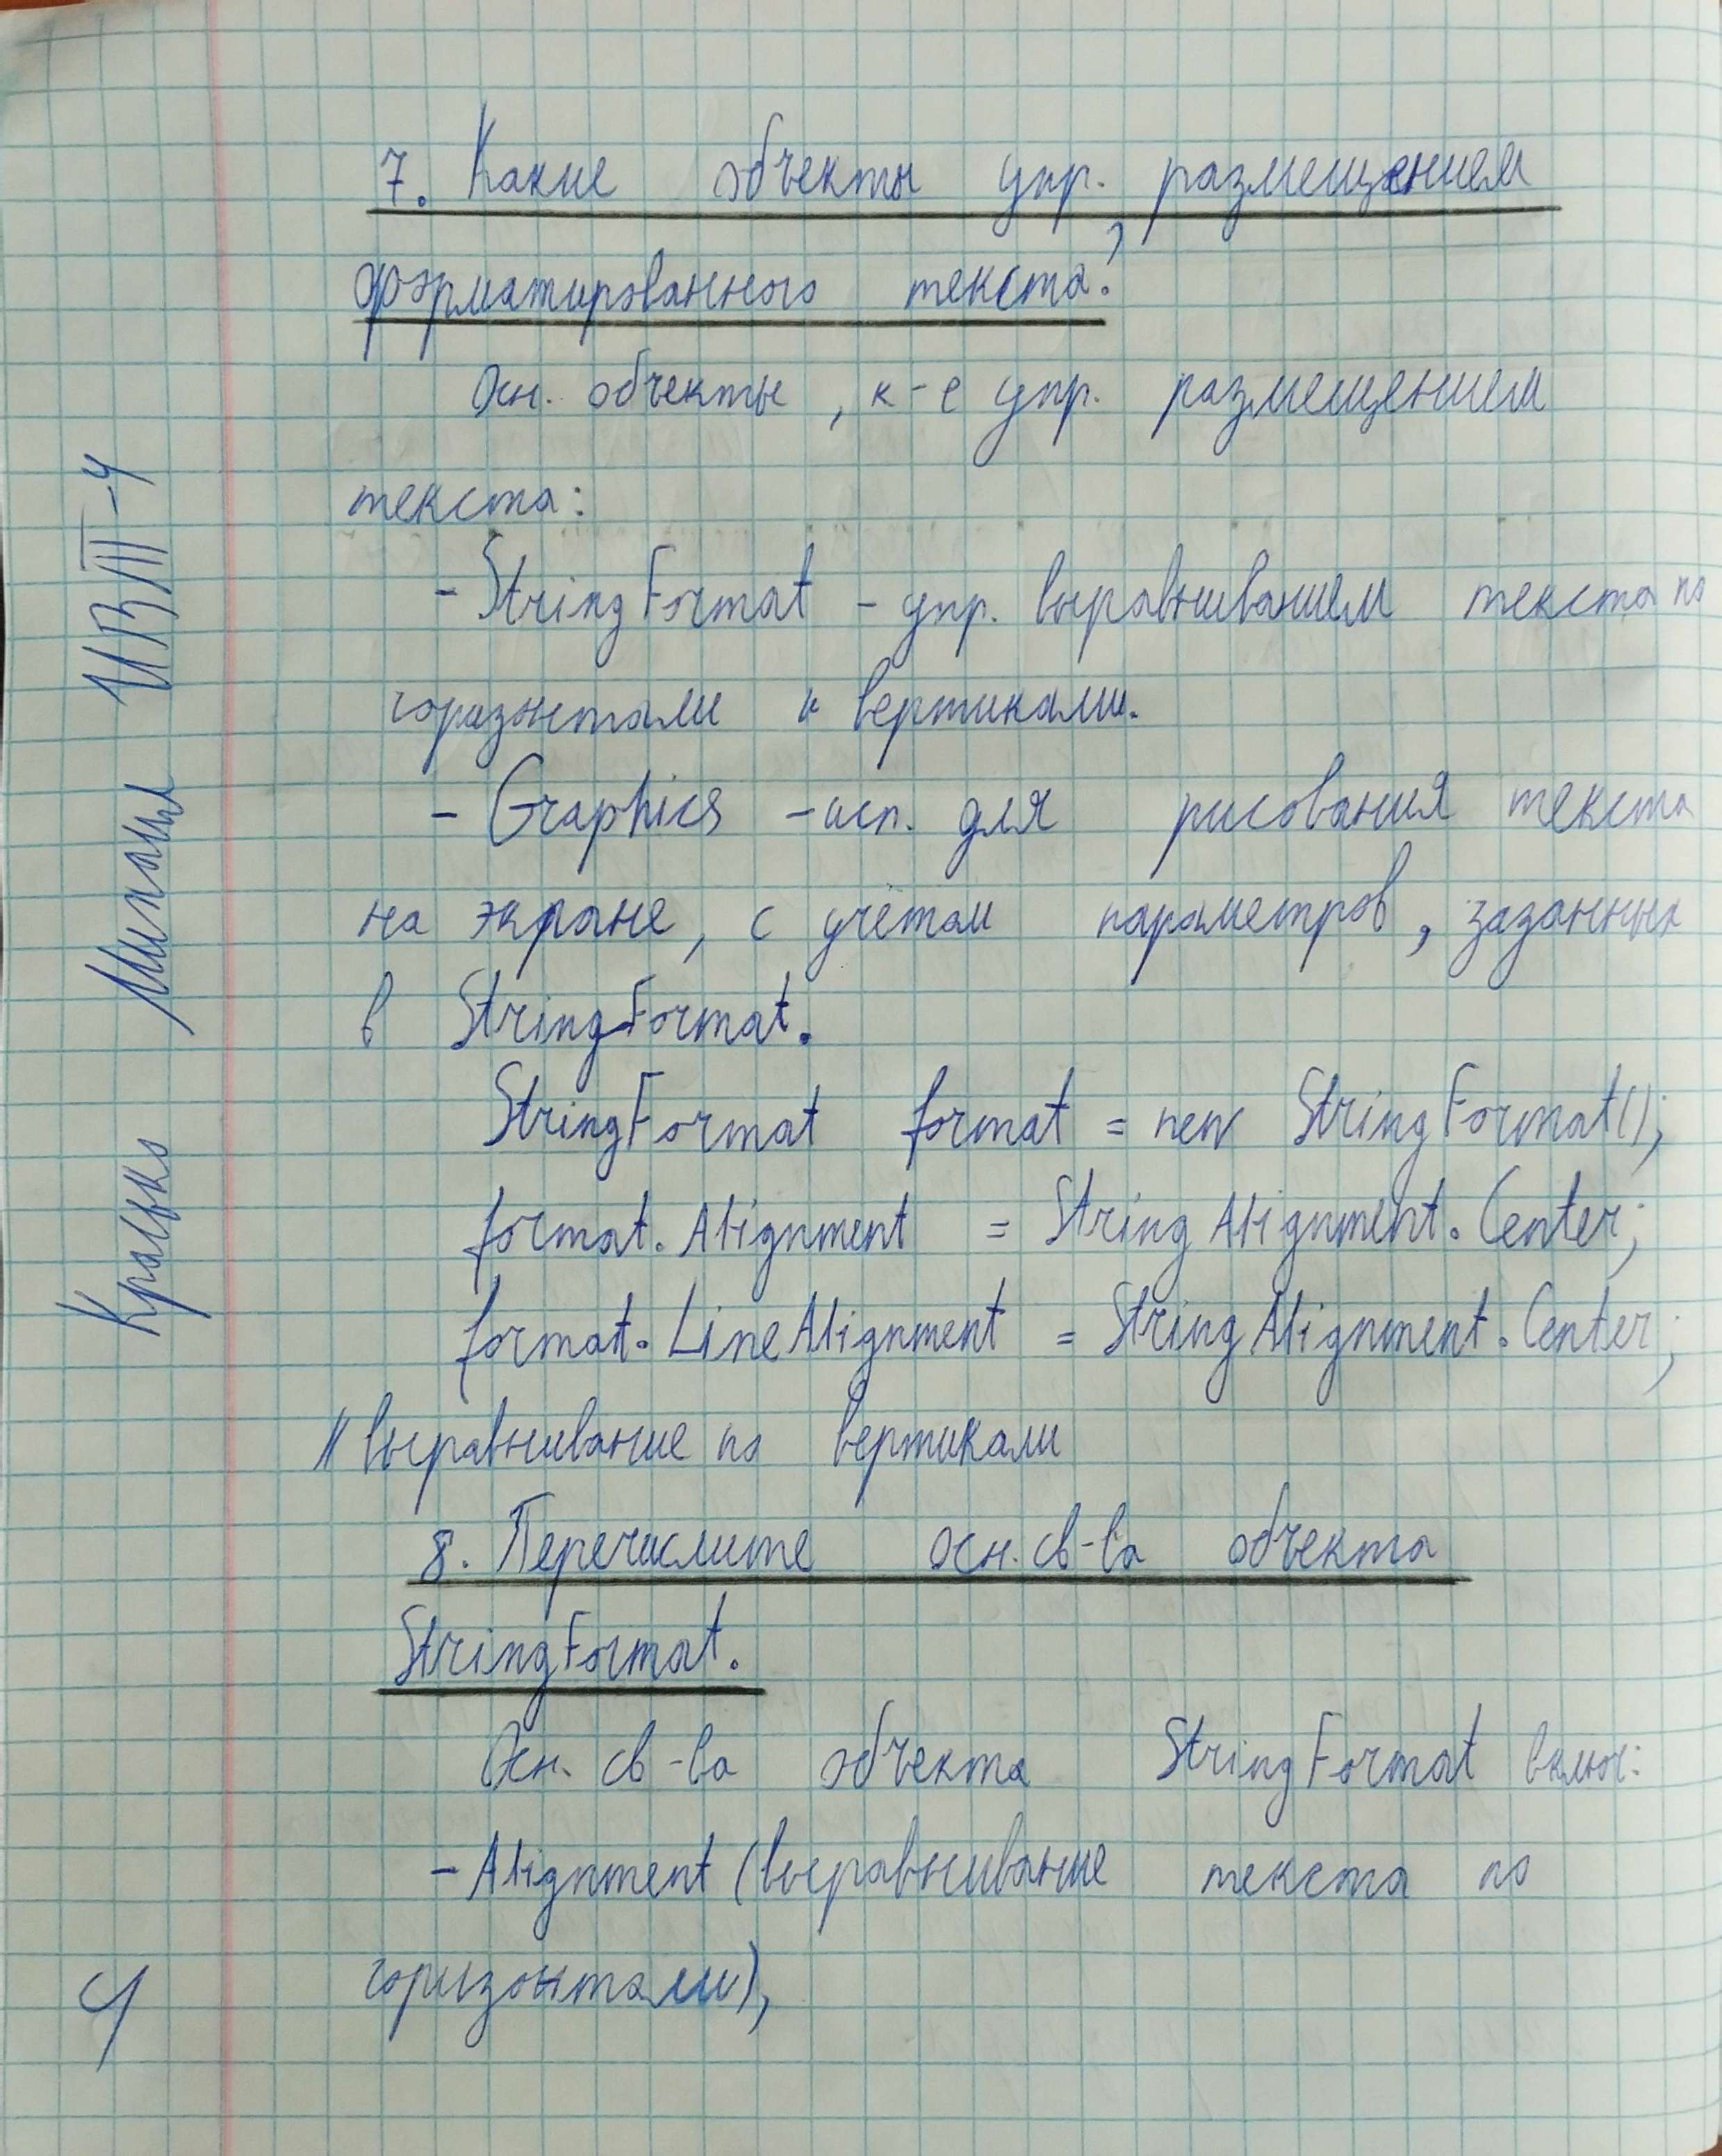 7. Какие объекты упр. размещением
форматированного текста?
Осн. объекты, к-е упр. размещением
текста:
- StringFormat - упр. выравниванием текста по
горизонтали и вертикали.
- Graphics - исп. для рисования текста
на экране, с учётом параметров, заданных
в StringFormat.
StringFormat format = new StringFormat();
format.Alignment = StringAlignment.Center;
format.LineAlignment = StringAlignment.Center;
// выравнивание по вертикали
8. Перечислите осн. св-ва объекта
StringFormat.
Осн. св-ва объекта StringFormat включ:
- Alignment (выравнивание текста по
горизонтали),
Кралько Михаил ИВТІІІ-4
4